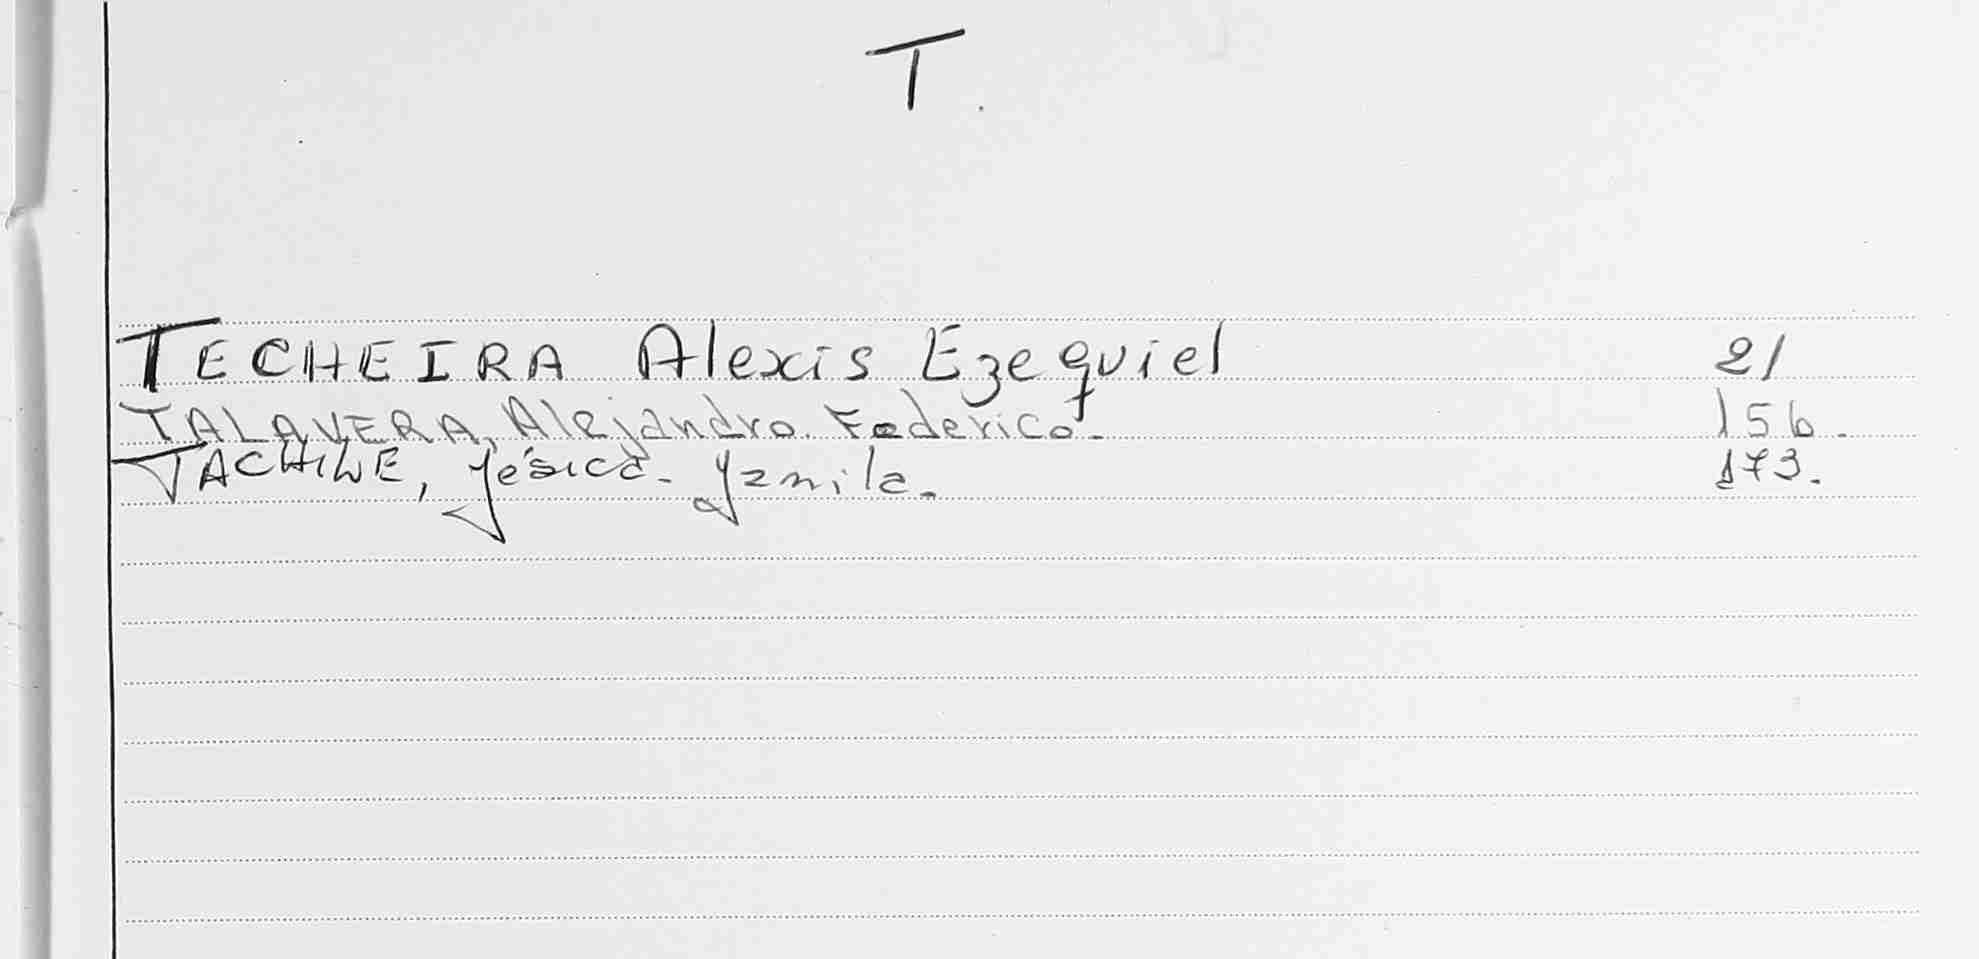 T.
TECHEIRA Alexis Ezequiel 21
TALAVERA, Alejandro. Federico. 156.
TACHILE, Yésica. Yamila. 173.